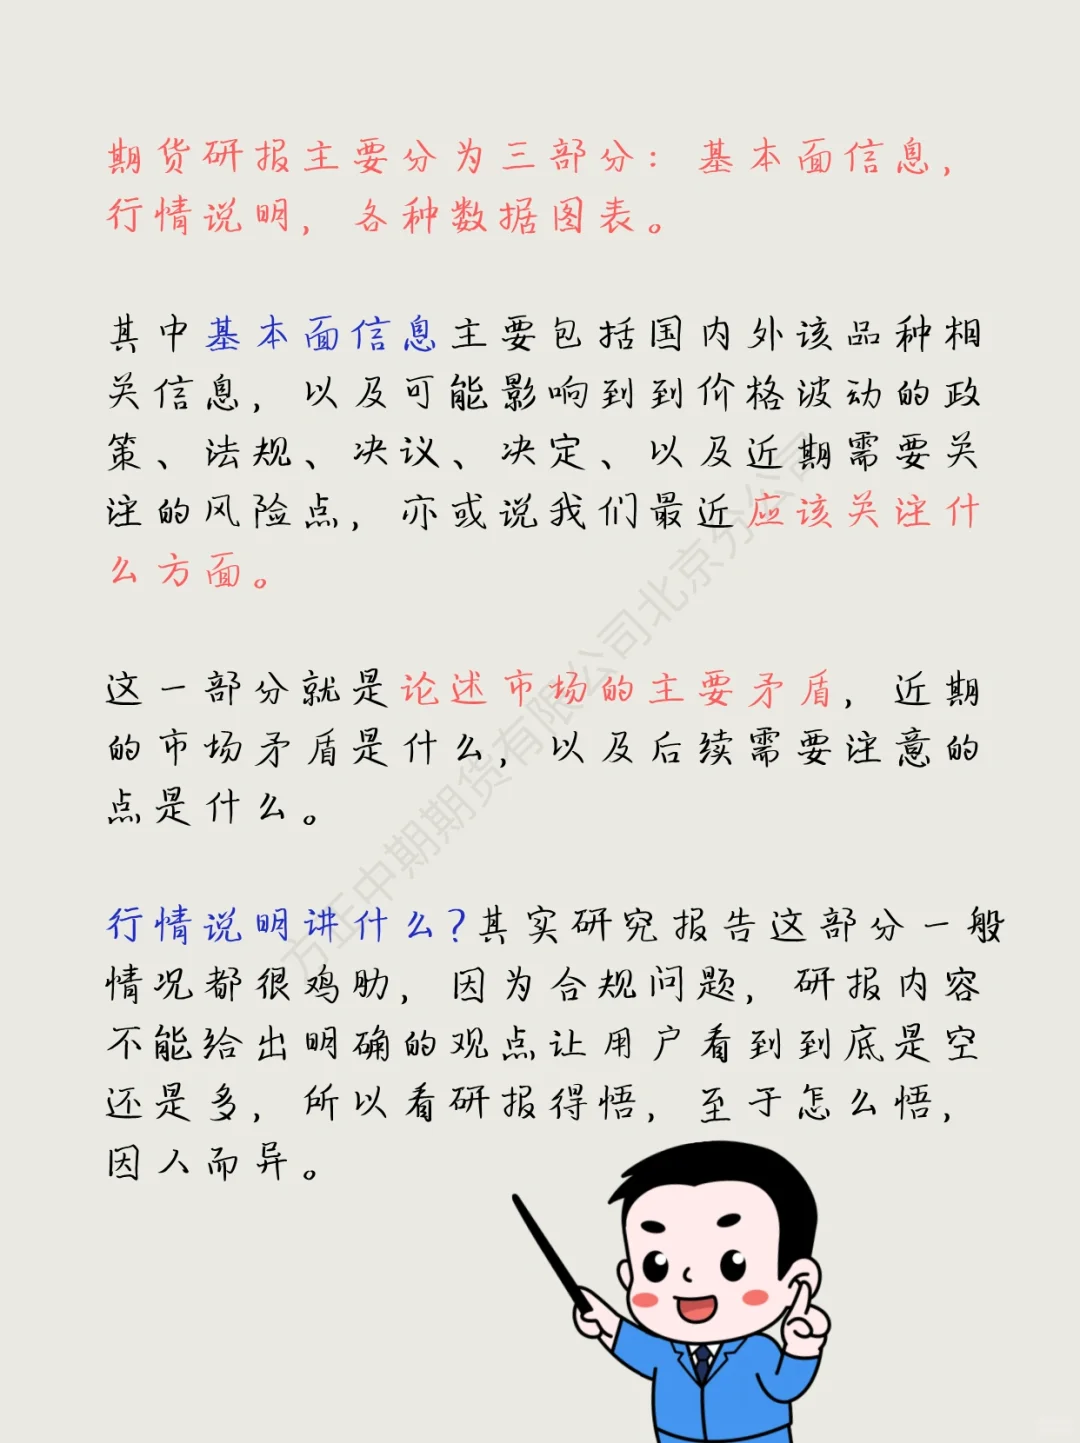 期货研报主要分为三部分：基本面信息，
行情说明，各种数据图表。
其中基本面信息主要包括国内外该品种相
关信息，以及可能影响到到价格波动的政
策、法规、决议、决定、以及近期需要关
注的风险点，亦或说我们最近应该关注什
么方面。
这一部分就是论述市场的主要矛盾，近期
的市场矛盾是什么，以及后续需要注意的
点是什么。
行情说明讲什么？其实研究报告这部分一般
情况都很鸡肋，因为合规问题，研报内容
不能给出明确的观点让用户看到到底是空
还是多，所以看研报得悟，至于怎么悟，
因人而异。
方正中期期货有限公司北京分公司